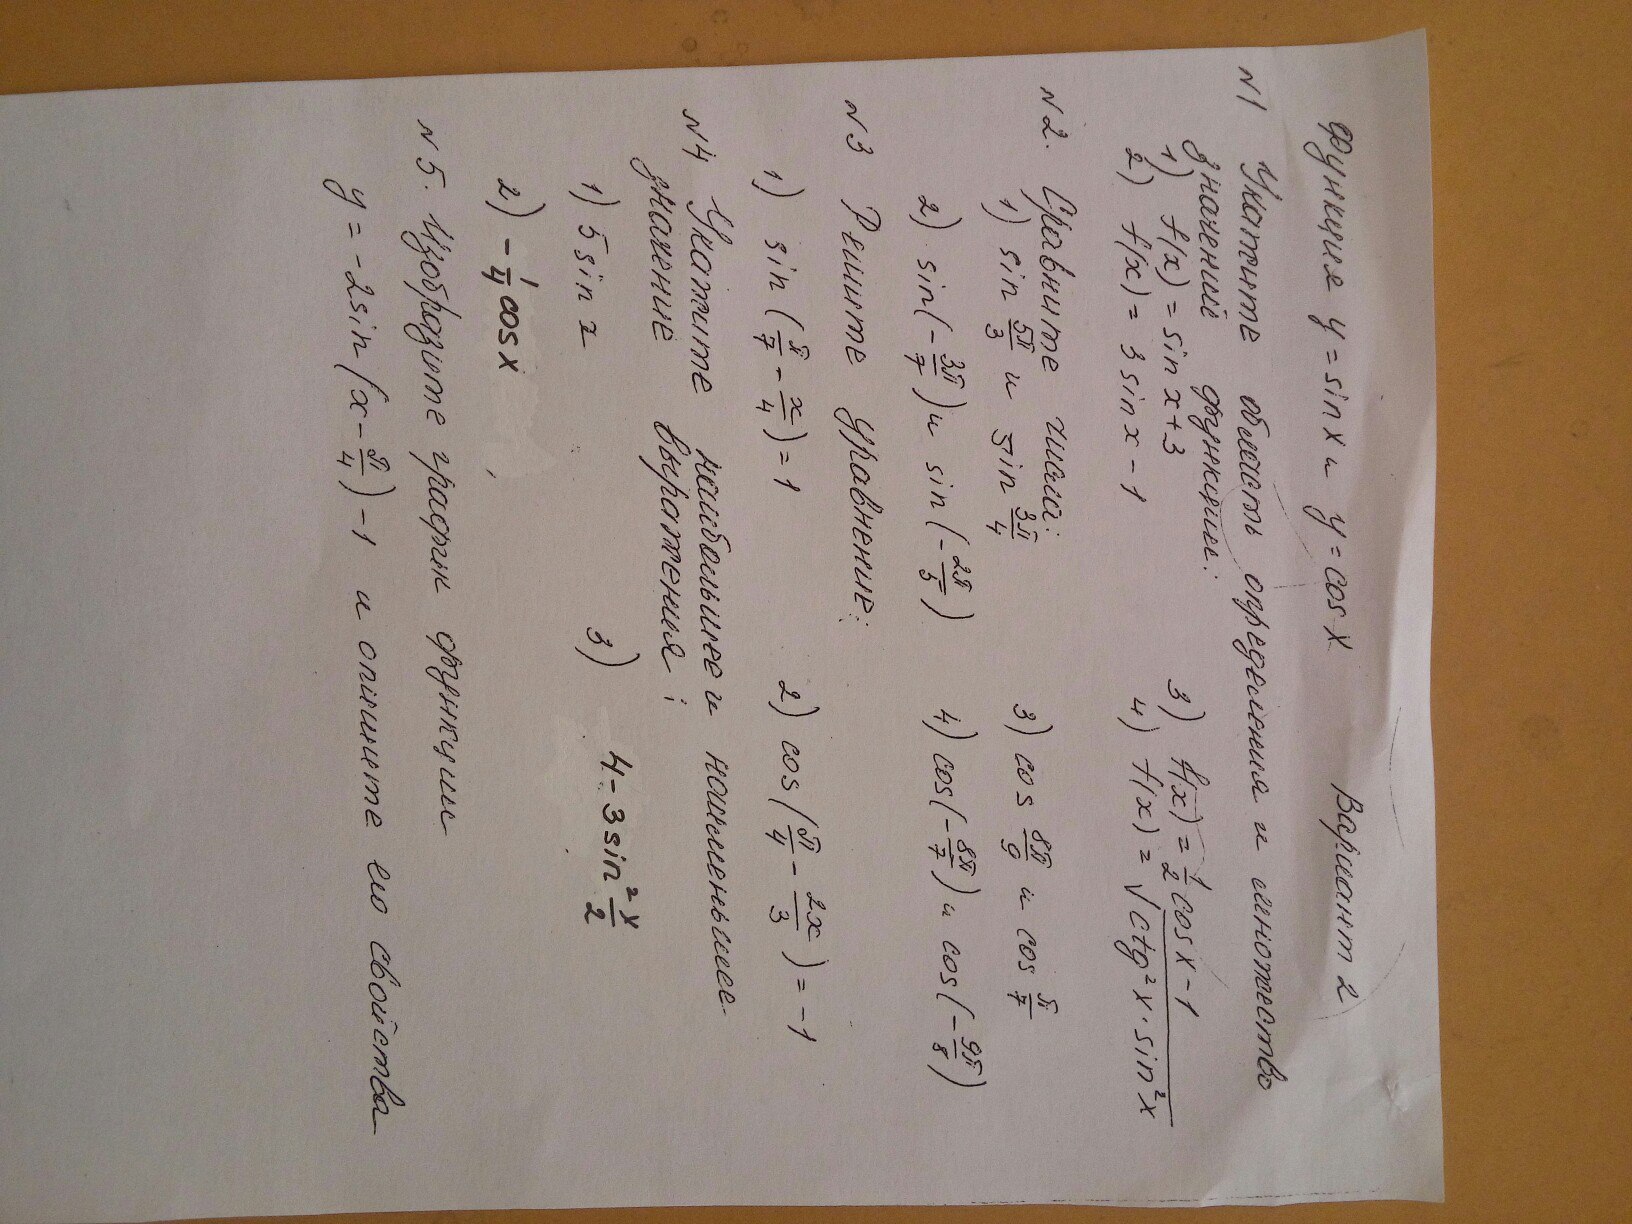 Функция y = sin x и y = cos x Вариант 2
N1 Укажите область определения и множество
значений функции:
1) f(x) = sin x + 3 3) f(x) = 1/2 cos x - 1
2) f(x) = 3 sin x - 1 4) f(x) = √(ctg²x · sin²x)
N2. Сравните числа:
1) sin 5π/3 и sin 3π/4 3) cos 8π/9 и cos π/7
2) sin(-3π/7) и sin(-2π/5) 4) cos(-8π/7) и cos(-9π/8)
N3 Решите уравнение:
1) sin(π/7 - x/4) = 1 2) cos(π/4 - 2x/3) = -1
N4 Укажите наибольшее и наименьшее
значение выражения:
1) 5 sin x 3) 4 - 3 sin² x/2
2) -1/4 cos x
N5. Изобразите график функции
y = -2 sin(x - π/4) - 1 и опишите его свойства